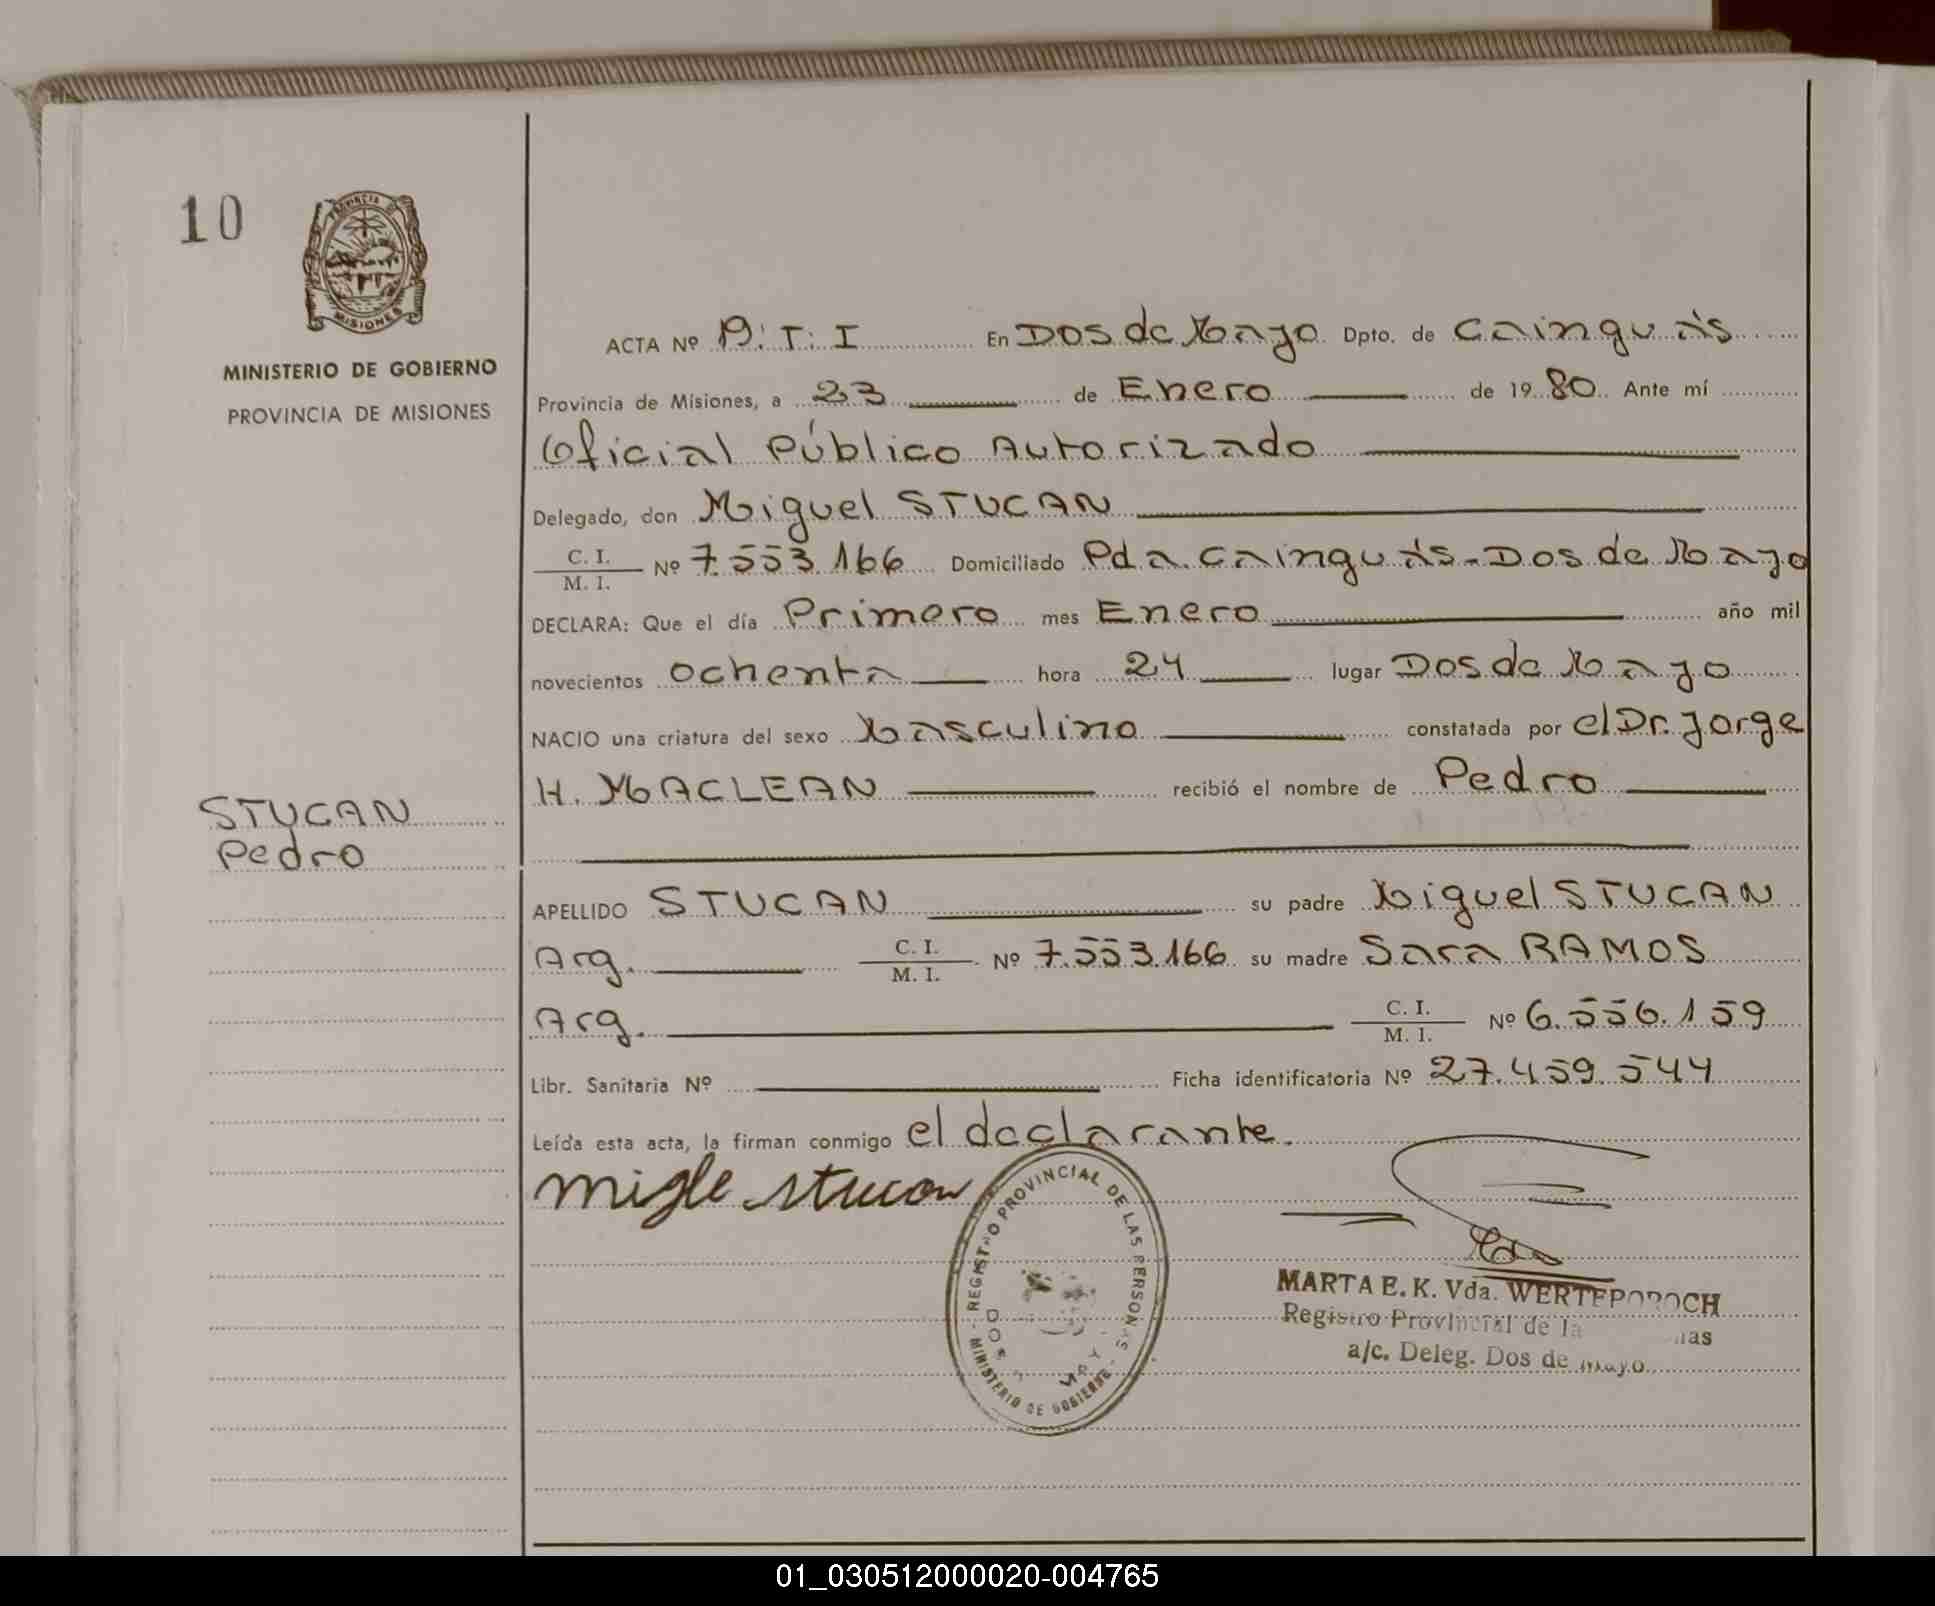 10
PROVINCIA
MISIONES
MINISTERIO DE GOBIERNO
PROVINCIA DE MISIONES
STUCAN
Pedro
ACTA Nº 10: T: I En Dos de Mayo Dpto. de Cainguás
Provincia de Misiones, a 23 de Enero de 1980. Ante mí
Oficial Público Autorizado
Delegado, don Miguel STUCAN
C. I. / M. I. Nº 7.553.166 Domiciliado Pda. Cainguás - Dos de Mayo
DECLARA: Que el día Primero mes Enero año mil
novecientos ochenta hora 24 lugar Dos de Mayo
NACIO una criatura del sexo Masculino constatada por el Dr. Jorge
H. MACLEAN recibió el nombre de Pedro
APELLIDO STUCAN su padre Miguel STUCAN
Arg. C. I. / M. I. Nº 7.553.166 su madre Sara RAMOS
Arg. C. I. / M. I. Nº 6.556.159
Libr. Sanitaria Nº Ficha identificatoria Nº 27.459.544
Leída esta acta, la firman conmigo el declarante.
migle stucan
REGISTRO PROVINCIAL DE LAS PERSONAS
MINISTERIO DE GOBIERNO
DOS
MARTA E. K. Vda. WERTEPOROCH
Registro Provincial de la
a/c. Deleg. Dos de Mayo
01_030512000020-004765